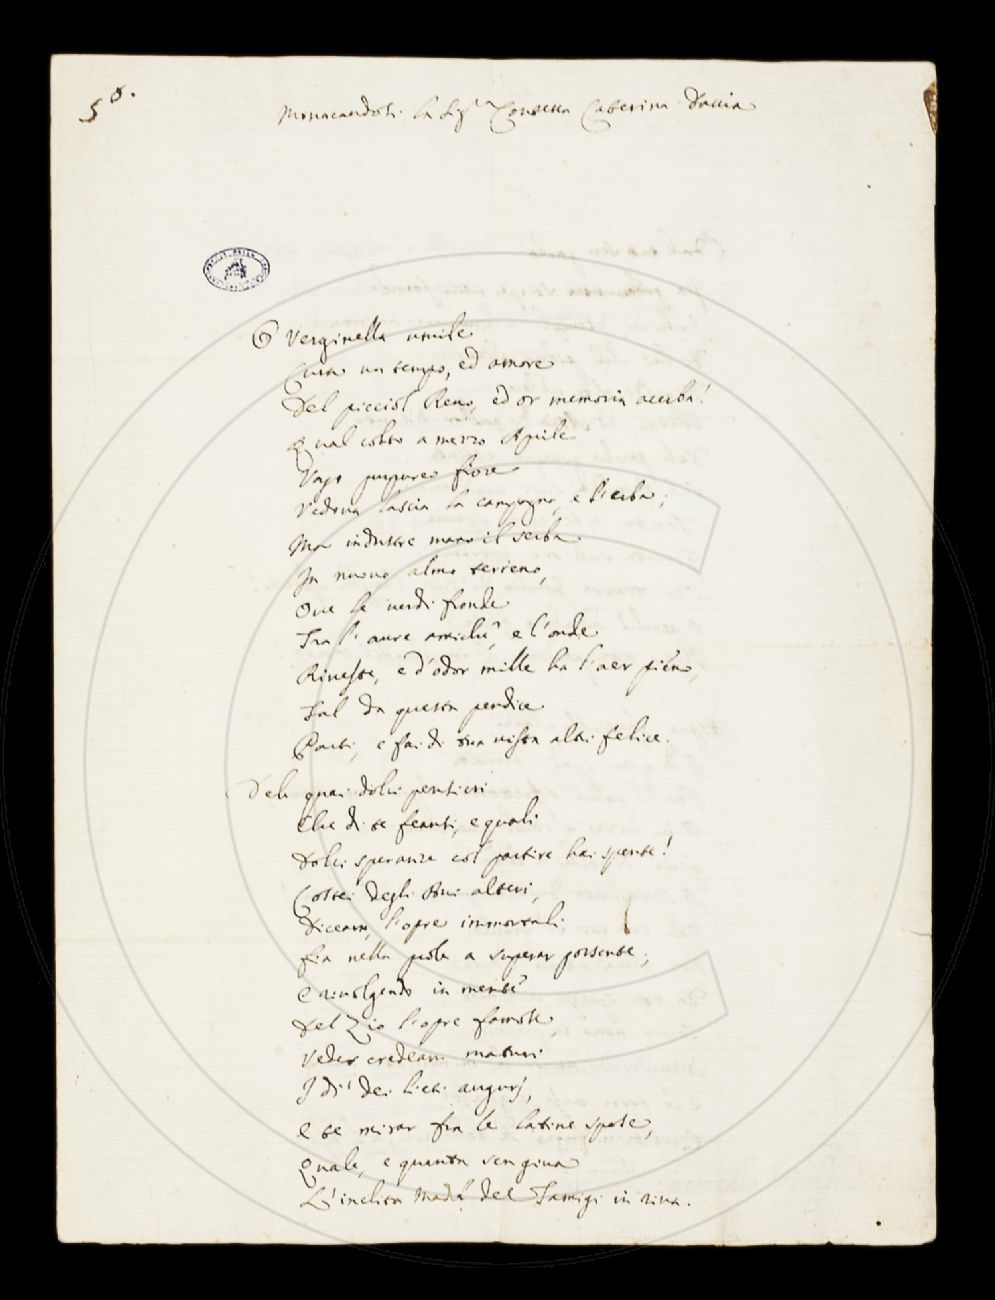 5º.
Monacandosi la Sig.ra Contessa Caterina Davia
O Verginella umile
Cura un tempo, ed amore
Del picciol Reno, ed or memoria acerba!
Qual colto a mezzo Aprile
Vago purpureo fiore
Vedova lascia la campagna, e l'erba;
Ma industre mano il serba
In nuovo almo terreno,
Ove le verdi fronde
Tra l'aure amiche, e l'onde
Riveste, e d'odor mille ha l'aer pieno,
Tal da questa pendice
Parti, e fai di tua vista altri felice.
Deh quai dolci pensieri
Che di te feansi, e quali
Dolci speranze col partire hai spente!
Costei degli Avi alteri,
Diceano, l'opre immortali
Fia nella prole a superar possente;
E rivolgendo in mente
Del Zio l'opre famose
Veder credeano maturi
I dì dei lieti augurj,
E te mirar fra le latine spose,
Quale, e quanta sen giva
L'inclita Madre del Tamigi in riva.